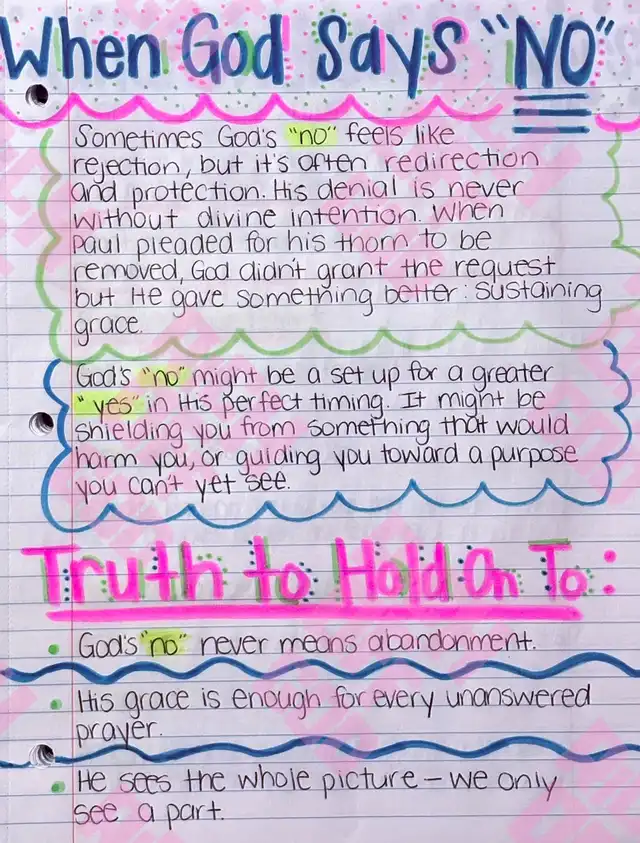 When God Says "NO"
Sometimes God's "no" feels like
rejection, but it's often redirection
and protection. His denial is never
without divine intention. When
Paul pleaded for his thorn to be
removed, God didn't grant the request
but He gave something better: sustaining
grace.
God's "no" might be a set up for a greater
"yes" in His perfect timing. It might be
shielding you from something that would
harm you, or guiding you toward a purpose
you can't yet see.
Truth to Hold On To:
• God's "no" never means abandonment.
• His grace is enough for every unanswered
prayer.
• He sees the whole picture – we only
see a part.